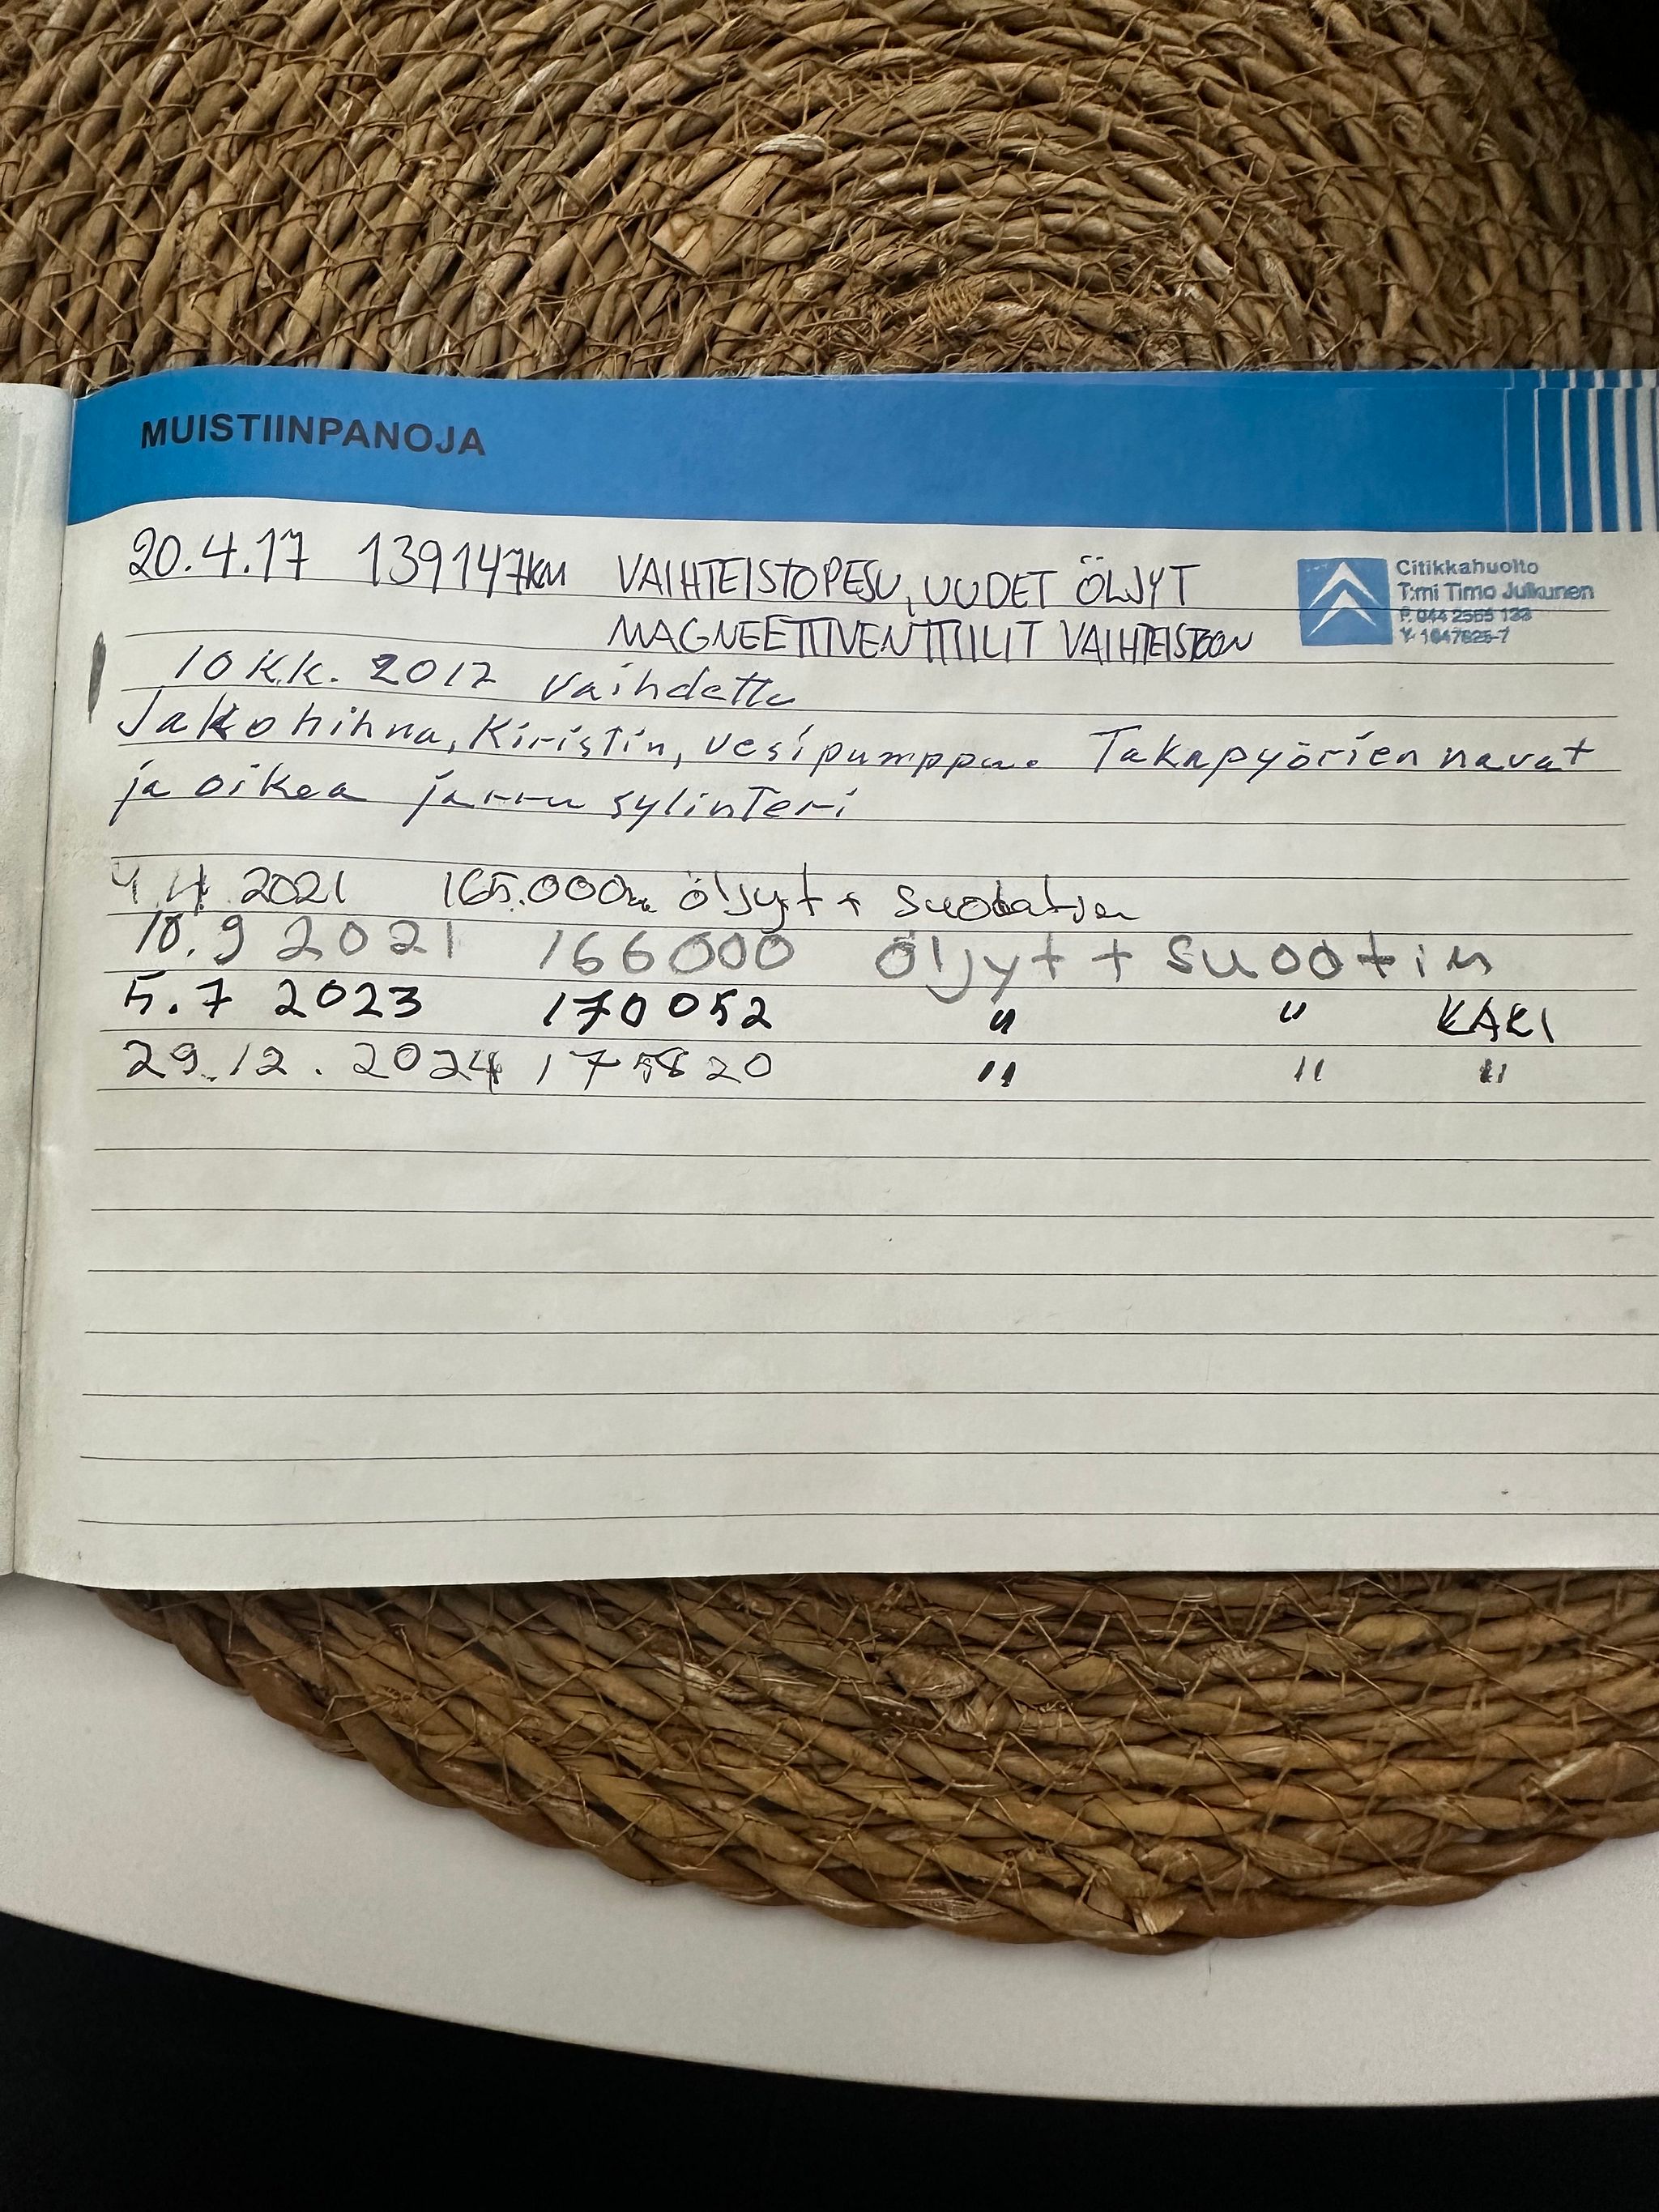 MUISTIINPANOJA
20.4.17 139147km VAIHTEISTOPESU, UUDET ÖLJYT
MAGNEETTIVENTTIILIT VAIHTEISTOON
Citikkahuolto
T:mi Timo Julkunen
P. 044 2565 133
Y- 1647625-7
10 K.K. 2017 Vaihdettu
Jakohihna, Kiristin, vesipumppu. Takapyörien navat
ja oikea jarru sylinteri
2021 165.000km öljyt + suodatin
10.9 2021 166000 öljyt + suootin
5.7 2023 170052 " " KAKI
29.12.2024 " " "